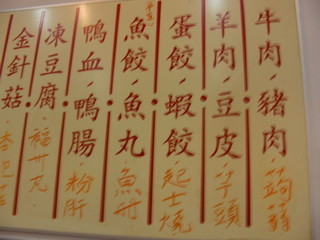 牛肉・豬肉・蒟蒻
羊肉・豆皮・芋頭
蛋餃・蝦餃・起士燒
魚餃・魚丸・魚卅
鴨血・鴨腸・粉肝
凍豆腐・福州丸
金針菇・杏包菇